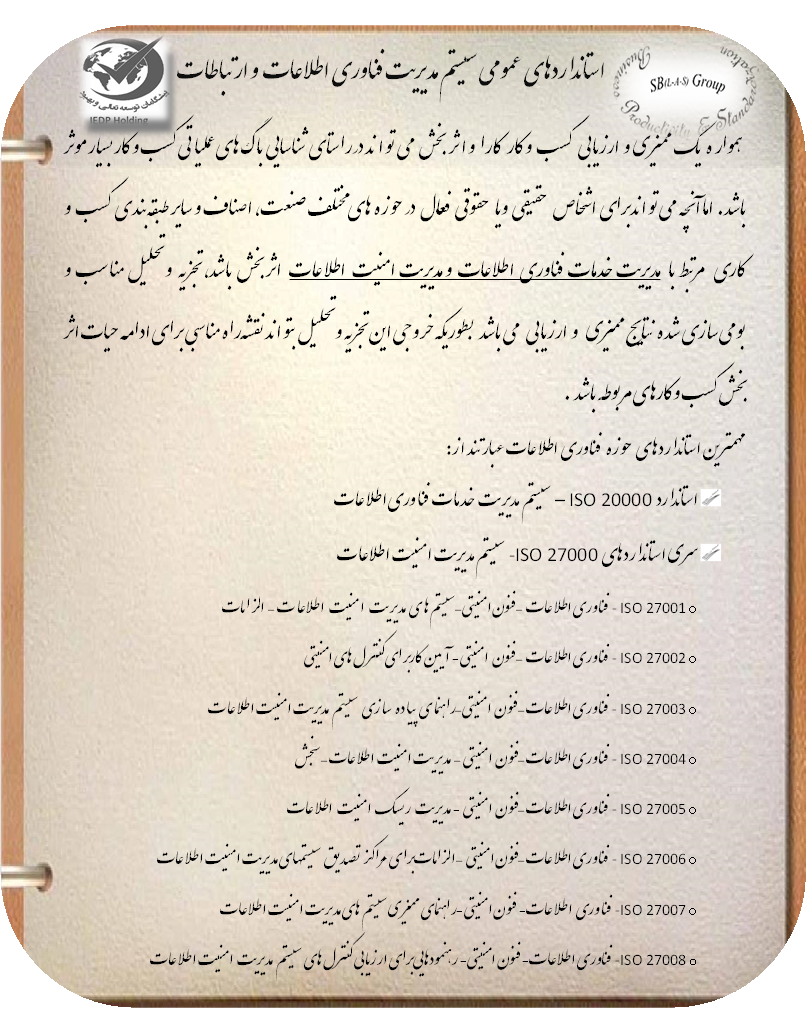 استانداردهای عمومی سیستم مدیریت فناوری اطلاعات و ارتباطات
SB(L-A-S) Group
Productivity & Standa
پیشگامان توسعه تعالی و بهبود
IEDP Holding
همواره یک ممیزی و ارزیابی کسب و کار کارا و اثر بخش می تواند در راستای شناسایی باگ های عملیاتی کسب و کار بسیار موثر
باشد. اما آنچه می تواند برای اشخاص حقیقی ویا حقوقی فعال در حوزه های مختلف صنعت، اصناف و سایر طبقه بندی کسب و
کاری مرتبط با مدیریت خدمات فناوری اطلاعات و مدیریت امنیت اطلاعات اثر بخش باشد، تجزیه و تحلیل مناسب و
بومی سازی شده نتایج ممیزی و ارزیابی می باشد بطوریکه خروجی این تجزیه و تحلیل بتواند نقشه راه مناسبی برای ادامه حیات اثر
بخش کسب و کارهای مربوطه باشد .
مهمترین استانداردهای حوزه فناوری اطلاعات عبارتند از:
استاندارد ISO 20000 – سیستم مدیریت خدمات فناوری اطلاعات
سری استانداردهای ISO 27000- سیستم مدیریت امنیت اطلاعات
ISO 27001 - فناوری اطلاعات –فنون امنیتی-سیستم های مدیریت امنیت اطلاعات – الزامات
ISO 27002 - فناوری اطلاعات –فنون امنیتی- آیین کار برای کنترل های امنیتی
ISO 27003 - فناوری اطلاعات–فنون امنیتی–راهنمای پیاده سازی سیستم مدیریت امنیت اطلاعات
ISO 27004 - فناوری اطلاعات–فنون امنیتی - مدیریت امنیت اطلاعات–سنجش
ISO 27005 - فناوری اطلاعات–فنون امنیتی -مدیریت ریسک امنیت اطلاعات
ISO 27006 - فناوری اطلاعات–فنون امنیتی –الزامات برای مراکز تصدیق سیستمهای مدیریت امنیت اطلاعات
ISO 27007 - فناوری اطلاعات- فنون امنیتی–راهنمای ممیزی سیستم های مدیریت امنیت اطلاعات
ISO 27008- فناوری اطلاعات- فنون امنیتی- رهنمودهایی برای ارزیابی کنترل های سیستم مدیریت امنیت اطلاعات